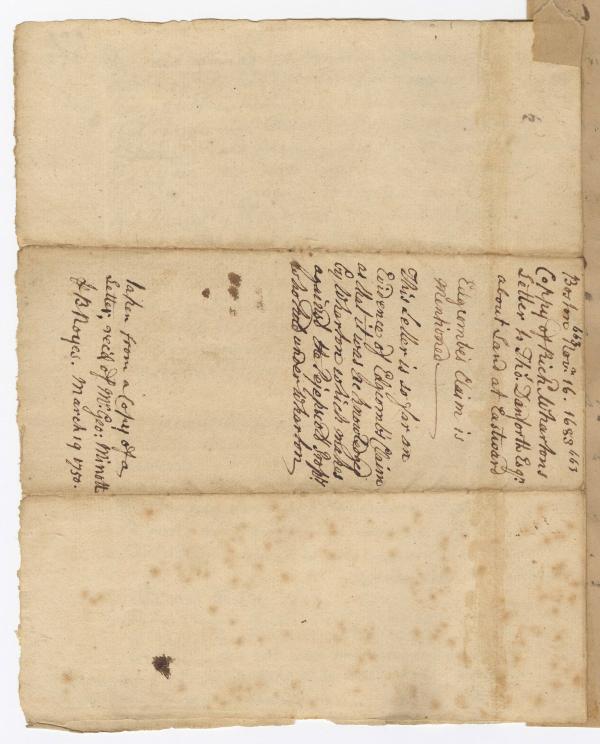 Boston Nov. 16. 1683 663
663
Coppy of Rich. Whartons
Letter to Tho. Danforth Esqr.
about Land at Eastward
Edgcombs Claim is
mentioned.
This Letter is so far an
Evidence of Edgcombs Claim
as that it was acknowledged
by Wharton which makes
against the Pejepscot Propr.
who hold under Wharton
taken from a Copy of a
Letter, recd. of Mr. Geo: Minott
J B Noyes. March 19 1750.